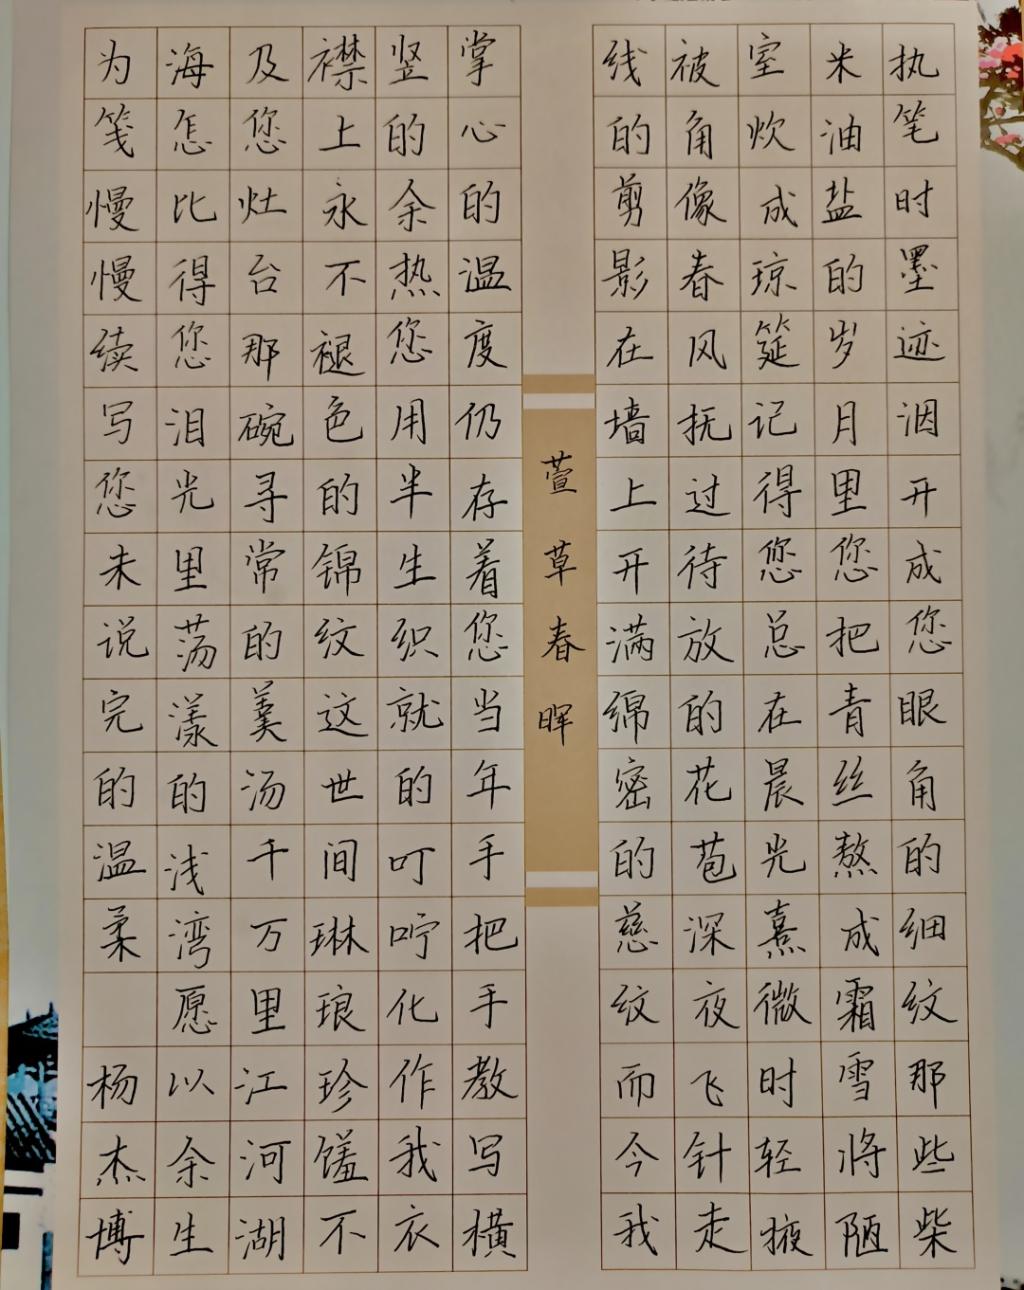 执笔时墨迹洇开成您眼角的细纹那些柴
米油盐的岁月里您把青丝熬成霜雪将陋
室炊成琼筵记得您总在晨光熹微时轻掖
被角像春风抚过待放的花苞深夜飞针走
线的剪影在墙上开满绵密的慈纹而今我
萱草春晖
掌心的温度仍存着您当年手把手教写横
竖的余热您用半生织就的叮咛化作我衣
襟上永不褪色的锦纹这世间琳琅珍馐不
及您灶台那碗寻常的羹汤千万里江河湖
海怎比得您泪光里荡漾的浅湾愿以余生
为笺慢慢续写您未说完的温柔 杨杰博